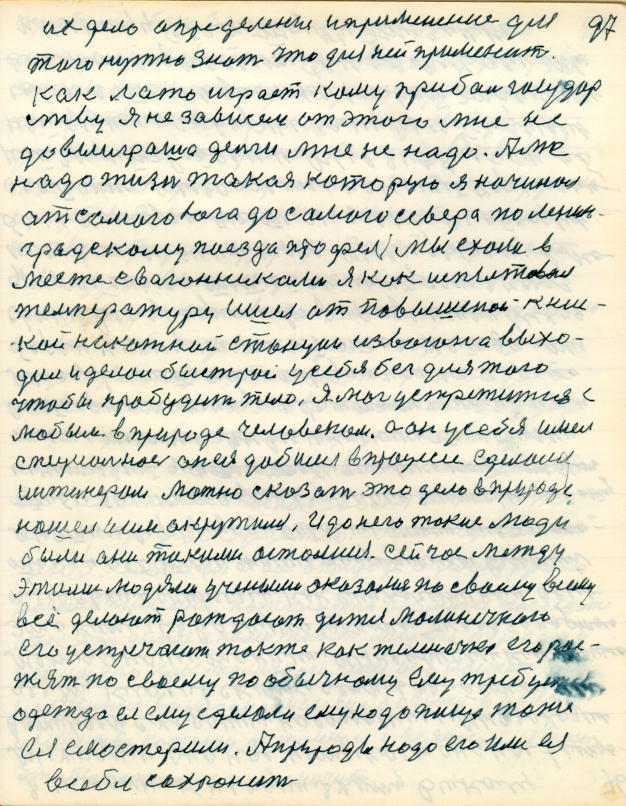 97
их дело определение и применение для
того нужно знать что для ней применит.
Как лато играет кому прибал государ
ству я не зависем от этого мне не
до выиграша денги мне не надо. А мне
надо жизн такая которую я начинал
от самого юга до самого севера по ленин-
градскому поезда мы ехали в
месте с вагонниками я как испытовал
температуру шел от повышеной к низ-
кой на кажной станции из вагона выхо-
дил и делал быстрой у себя бег для того
чтобы пробудит тело. Я мог устретится с
любым в природе человеком. а он у себя имел
специалное он ея добился в процессе сделаны
инженером можно сказат это дело в природе
нашел и им окружил, И до него такие люди
были они такими остались. сейчас между
этими людями учеными оказался по своему всему
всё делают рождают дитя малинечкого
его устречают также как теленочка его рас-
тят по своему по обычному Ему требуется
одежда ея ему сделали ему надо пища тоже
ея смостерили. А природы надо его или ея
в себя сохронит